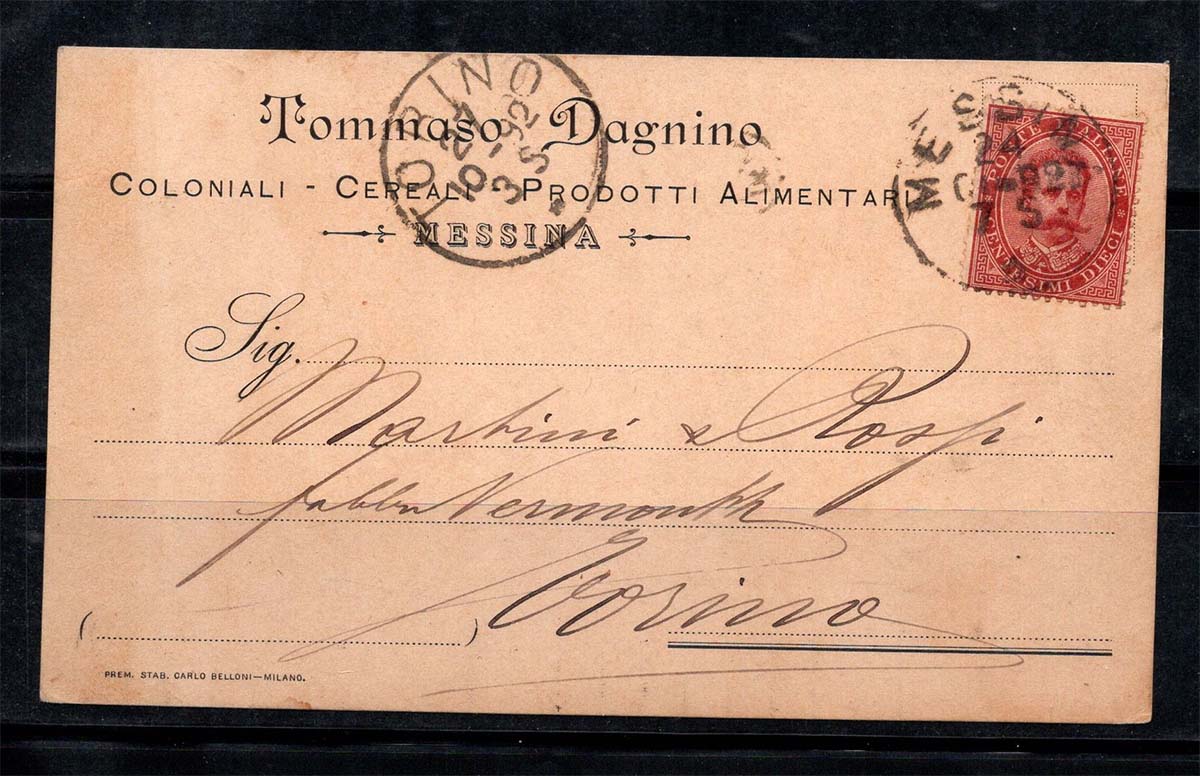 Tommaso Dagnino
COLONIALI - CEREALI - PRODOTTI ALIMENTARI
MESSINA
TORINO
10-92
3 S
*
MESSINA
24
5
POSTE ITALIANE
CENTESIMI DIECI
Sig.
Martini & Rossi
fabbr Vermouth
Torino
( )
PREM. STAB. CARLO BELLONI—MILANO.